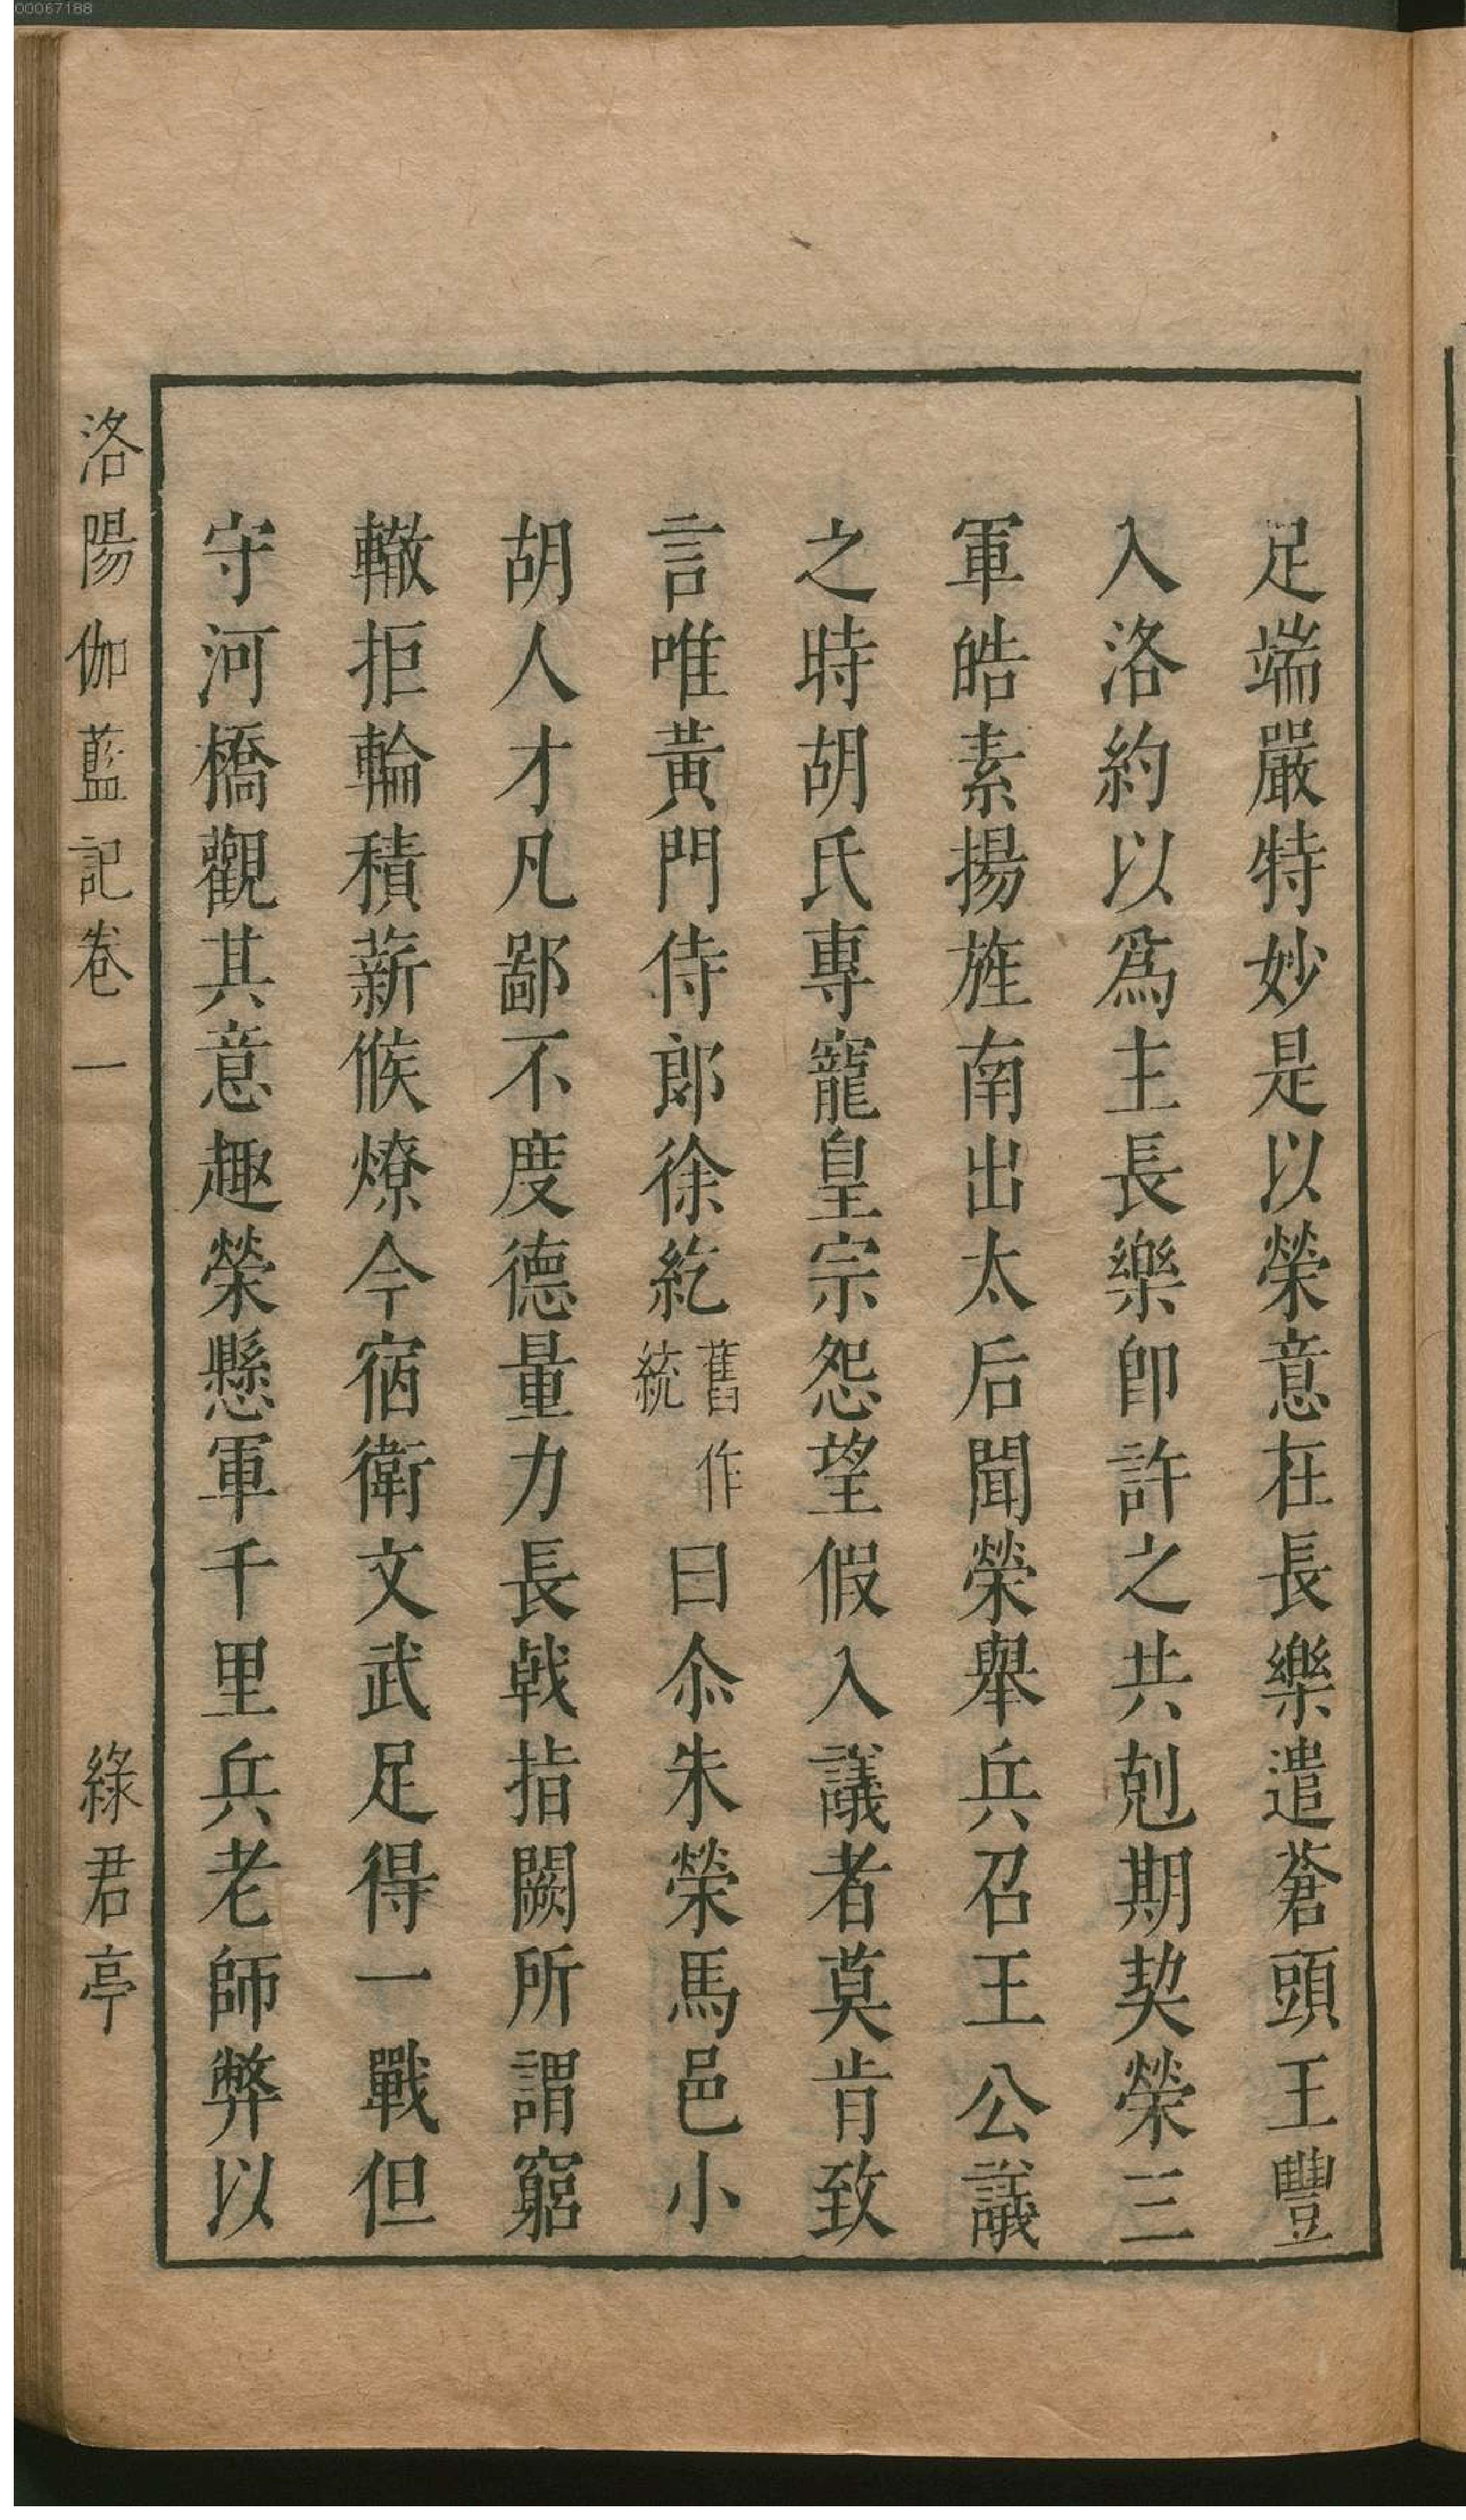 00067188
足端嚴特妙是以榮意在長樂遣蒼頭王豐
入洛約以爲主長樂卽許之共剋期契榮三
軍皓素揚旌南出太后聞榮舉兵召王公議
之時胡氏專寵皇宗怨望假入議者莫肯致
言唯黃門侍郎徐紇舊作統曰尒朱榮馬邑小
胡人才凡鄙不度德量力長戟指闕所謂窮
轍拒輪積薪候燎今宿衛文武足得一戰但
守河橋觀其意趣榮懸軍千里兵老師弊以
洛陽伽藍記卷一
綠君亭